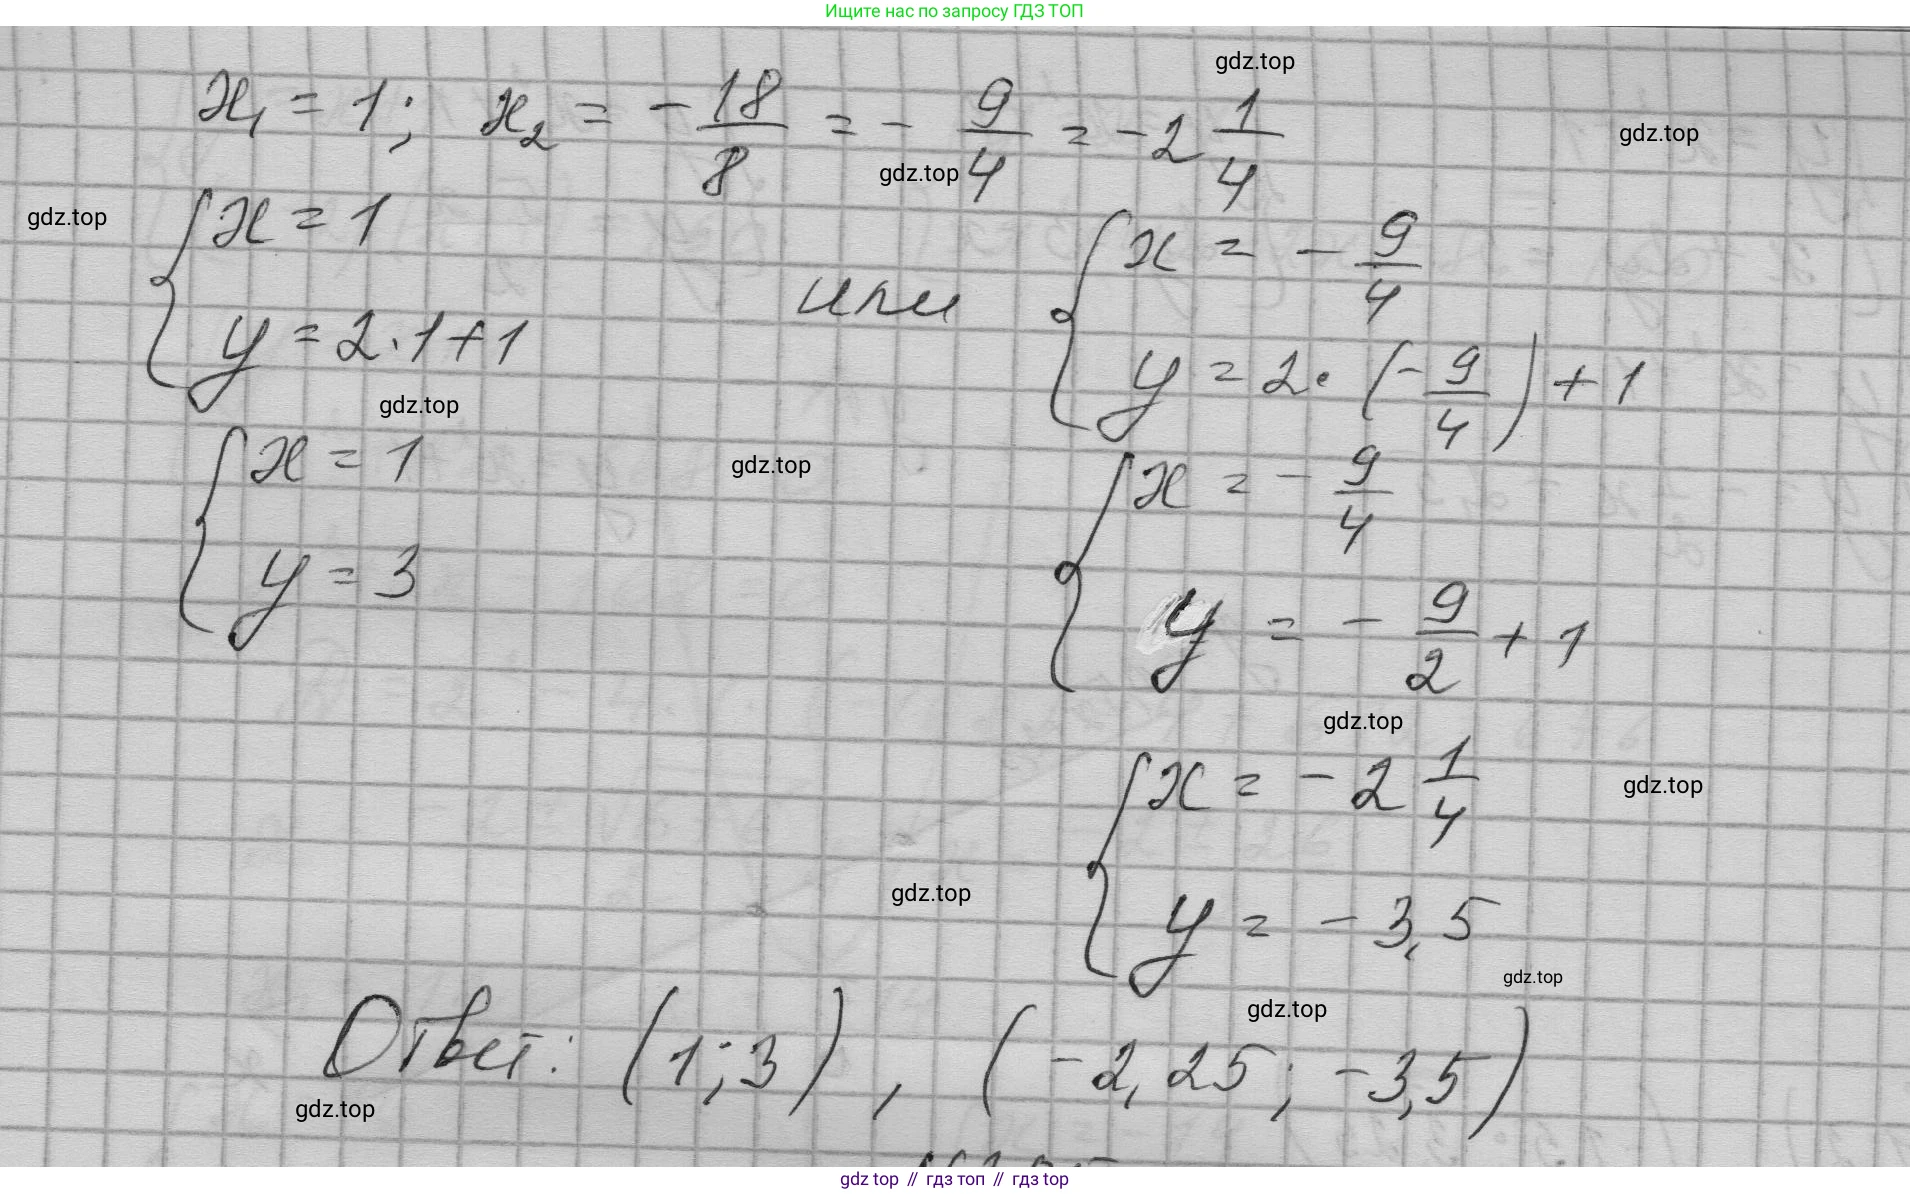 Ищите нас по запросу ГДЗ ТОП
gdz.top
x₁ = 1; x₂ = -18/8 = -9/4 = -2 1/4
gdz.top
gdz.top
gdz.top
{ x = 1
y = 2·1+1
или
{ x = -9/4
y = 2·(-9/4)+1
gdz.top
{ x = 1
y = 3
gdz.top
{ x = -9/4
y = -9/2 + 1
gdz.top
{ x = -2 1/4
y = -3,5
gdz.top
gdz.top
gdz.top
gdz.top
Ответ: (1; 3), (-2,25; -3,5)
gdz.top
gdz top // гдз топ // гдз top